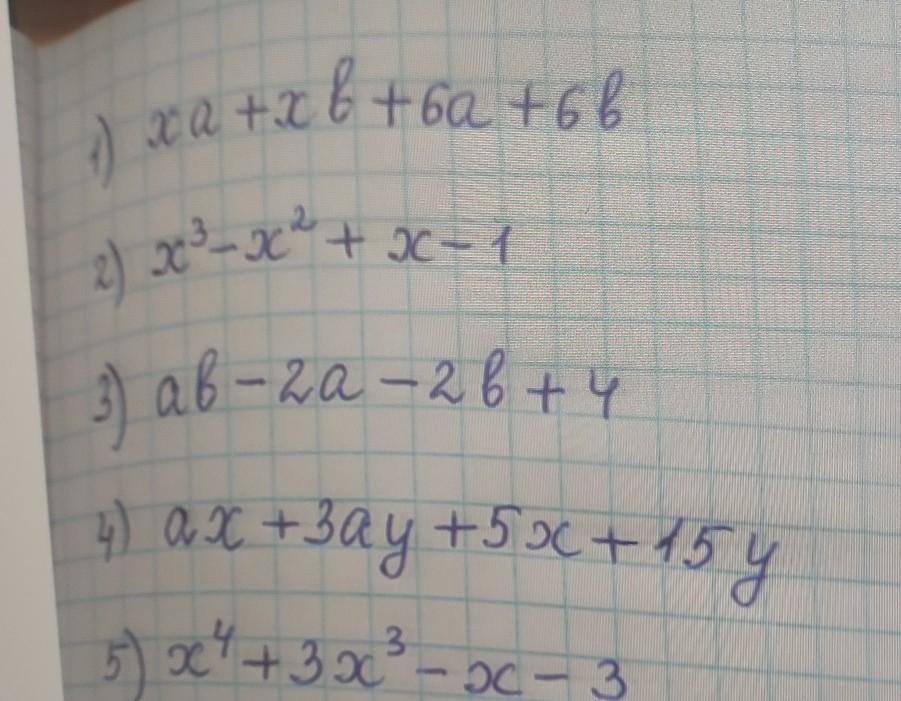 1) xa + xb + 6a + 6b
2) x³ - x² + x - 1
3) ab - 2a - 2b + 4
4) ax + 3ay + 5x + 15y
5) x⁴ + 3x³ - x - 3